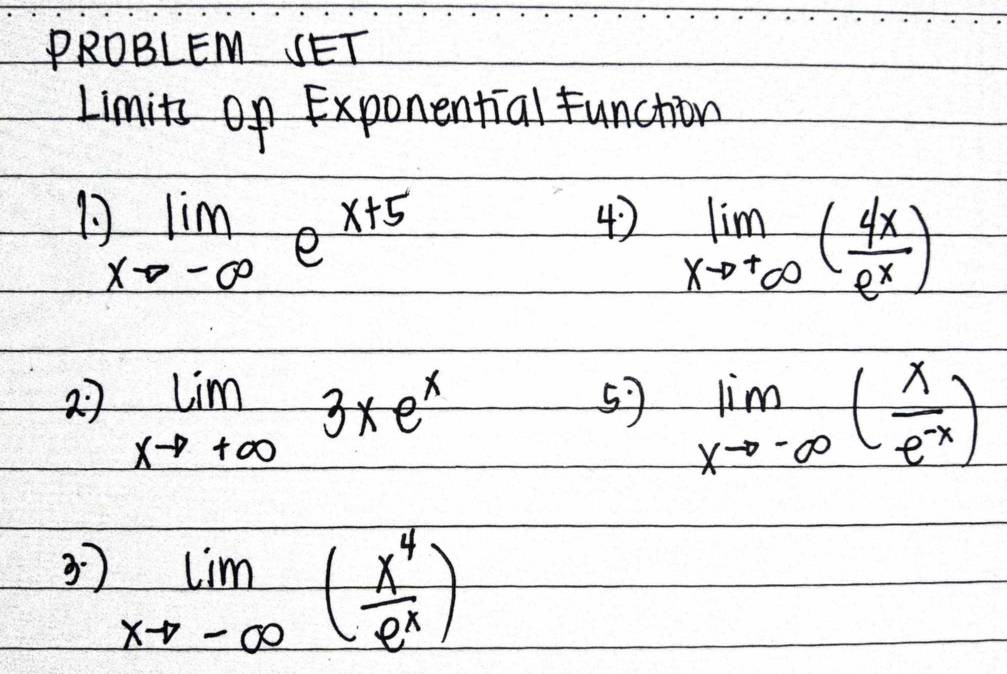 PROBLEM SET
Limits of Exponential Function
1.) lim x→-∞ e^{x+5}
4.) lim x→+∞ (4x/e^x)
2.) lim x→+∞ 3xe^x
5.) lim x→-∞ (x/e^{-x})
3.) lim x→-∞ (x^4/e^x)